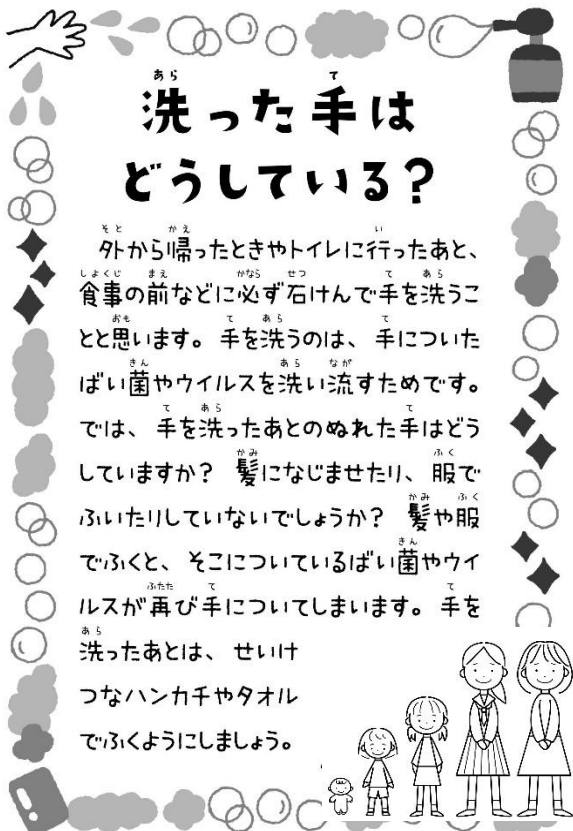 洗った手は
どうしている？
外から帰ったときやトイレに行ったあと、
食事の前などに必ず石けんで手を洗うこ
とと思います。手を洗うのは、手についた
ばい菌やウイルスを洗い流すためです。
では、手を洗ったあとのぬれた手はどう
していますか？ 髪になじませたり、服で
ふいたりしていないでしょうか？ 髪や服
でふくと、そこについているばい菌やウイ
ルスが再び手についてしまいます。手を
洗ったあとは、せいけ
つなハンカチやタオル
でふくようにしましょう。